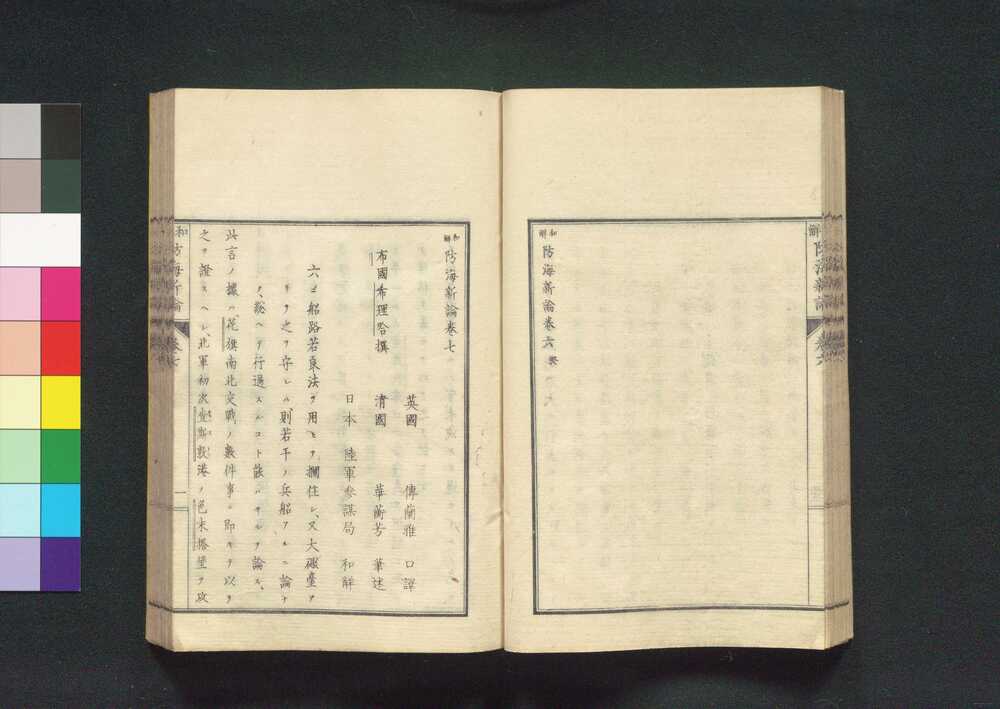 和解 防海新論 卷六 終
和解 防海新論 卷七
布國希理哈撰
英國 傅蘭雅 口譯
清國 華蘅芳 筆述
日本 陸軍參謀局 和解
六ニ船路若良法ヲ用ヒテ攔住シ、又大礮臺ア
リテ之ヲ守レハ則若干ノ兵船アルニ論ナ
ク、敢ヘテ行過スルコト能ハサルヲ論ス、
此言ノ據ハ、花旗南北交戰ノ數件事ニ即キテ以テ
之ヲ證スヘシ、北軍初次
港ノ色末
ヲ攻
和
防海新論
卷七
一
解
防海新論
卷六